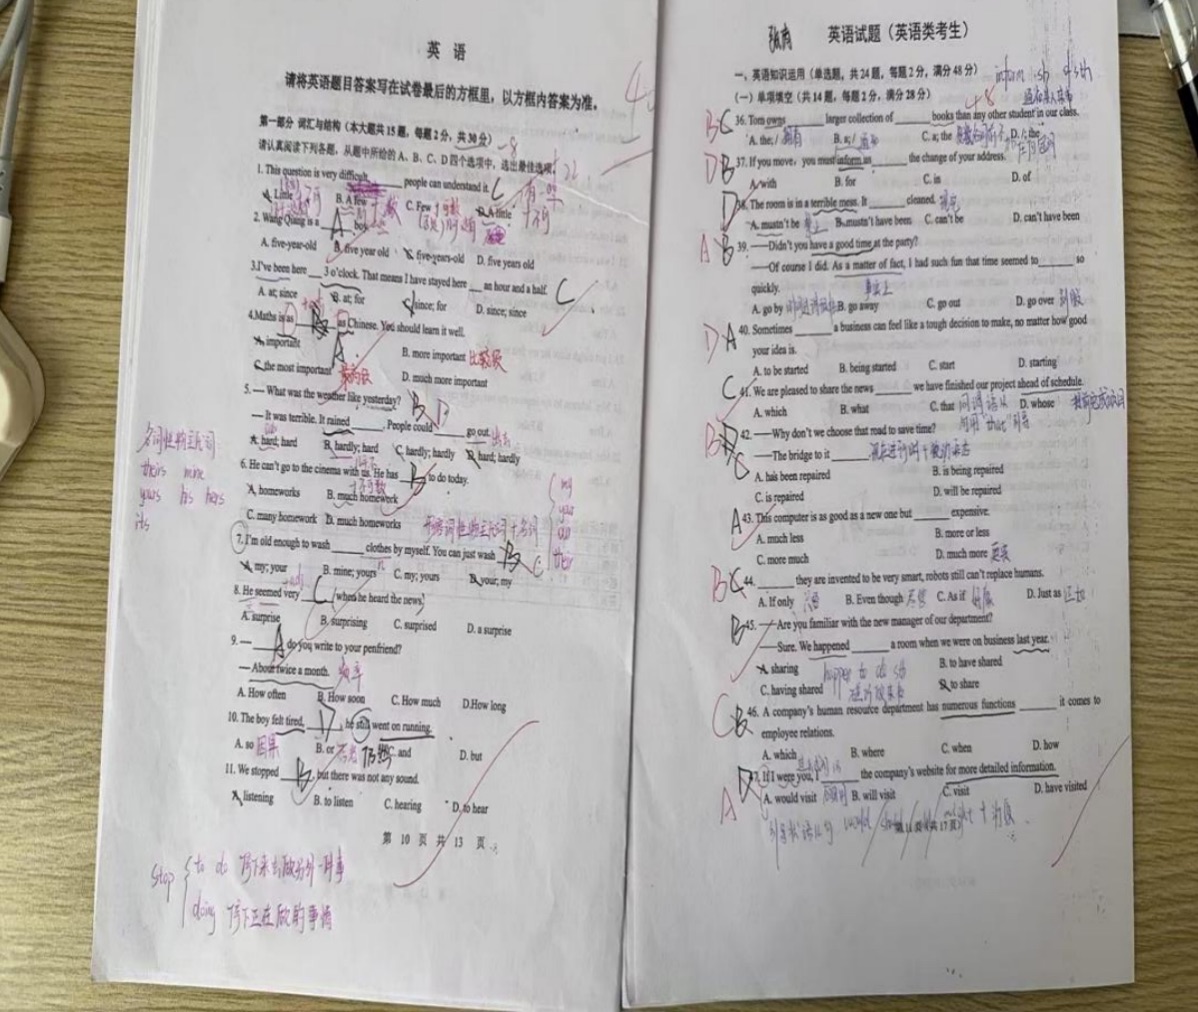 英 语
请将英语题目答案写在试卷最后的方框里，以方框内答案为准。
第一部分 词汇与结构（本大题共15题，每题2分，共30分） -8
请认真阅读下列各题，从题中所给的A、B、C、D四个选项中，选出最佳选项。 22
1. This question is very difficult, ______ people can understand it. C
A. Little B. A few C. Few D. A little
2. Wang Qiang is a A boy.
A. five-year-old B. five year old C. five-years-old D. five years old
3.I've been here ___ 3 o'clock. That means I have stayed here ___ an hour and a half. C
A. at; since B. at; for C. since; for D. since; since
4.Maths is as ______ as Chinese. You should learn it well.
A. important B. more important 比较级
C. the most important 最高级 D. much more important
5. — What was the weather like yesterday? B D
— It was terrible. It rained ______. People could ______ go out. 出去
A. hard; hard B. hardly; hard C. hardly; hardly D. hard; hardly
6. He can't go to the cinema with us. He has B to do today.
A. homeworks B. much homework 不可数
C. many homework D. much homeworks
名词性物主代词:
theirs mine
yours his hers
its
形容词性物主代词+名词
my
your
our
their
7. I'm old enough to wash ______ clothes by myself. You can just wash B C
A. my; your B. mine; yours C. my; yours D. your; my
8. He seemed very C (when he heard the news.)
A. surprise B. surprising C. surprised D. a surprise
9. — A do you write to your penfriend?
— About twice a month. 频率
A. How often B. How soon C. How much D.How long
10. The boy felt tired, D he still went on running.
A. so 因果 B. or 否则 仍然 C. and D. but
11. We stopped B but there was not any sound.
A. listening B. to listen C. hearing D. to hear
第 10 页 共 13 页
stop to do 停下来去做另外一件事
doing 停下正在做的事情
英语试题（英语类考生）
一、英语知识运用（单选题，共24题，每题2分，满分48分） inform sb of sth
（一）单项填空（共14题，每题2分，满分28分） 48
B C 36. Tom owns ______ larger collection of ______ books than any other student in our class.
A. the; / B. a; / C. a; the D. /; the
D B 37. If you move, you must inform us ______ the change of your address.
A. with B. for C. in D. of
D 38. The room is in a terrible mess. It ______ cleaned.
A. mustn't be B. mustn't have been C. can't be D. can't have been
A B 39. —Didn't you have a good time at the party?
—Of course I did. As a matter of fact, I had such fun that time seemed to ______ so
quickly. 事实上
A. go by B. go away C. go out D. go over
D A 40. Sometimes ______ a business can feel like a tough decision to make, no matter how good
your idea is.
A. to be started B. being started C. start D. starting
C 41. We are pleased to share the news ______ we have finished our project ahead of schedule.
A. which B. what C. that D. whose
B D 42. —Why don't we choose that road to save time? 用"that"引导
C —The bridge to it ______. 现在进行时+被动语态
A. has been repaired B. is being repaired
C. is repaired D. will be repaired
A 43. This computer is as good as a new one but ______ expensive.
A. much less B. more or less
C. more much D. much more 更
B C 44. ______ they are invented to be very smart, robots still can't replace humans.
A. If only B. Even though 尽管 C. As if 好像 D. Just as 正如
B 45. —Are you familiar with the new manager of our department?
—Sure. We happened ______ a room when we were on business last year.
A. sharing happen to do sth B. to have shared
C. having shared D. to share
C B 46. A company's human resource department has numerous functions ______ it comes to
employee relations.
A. which B. where C. when D. how
A D 47. If I were you, I ______ the company's website for more detailed information.
A. would visit B. will visit C. visit D. have visited